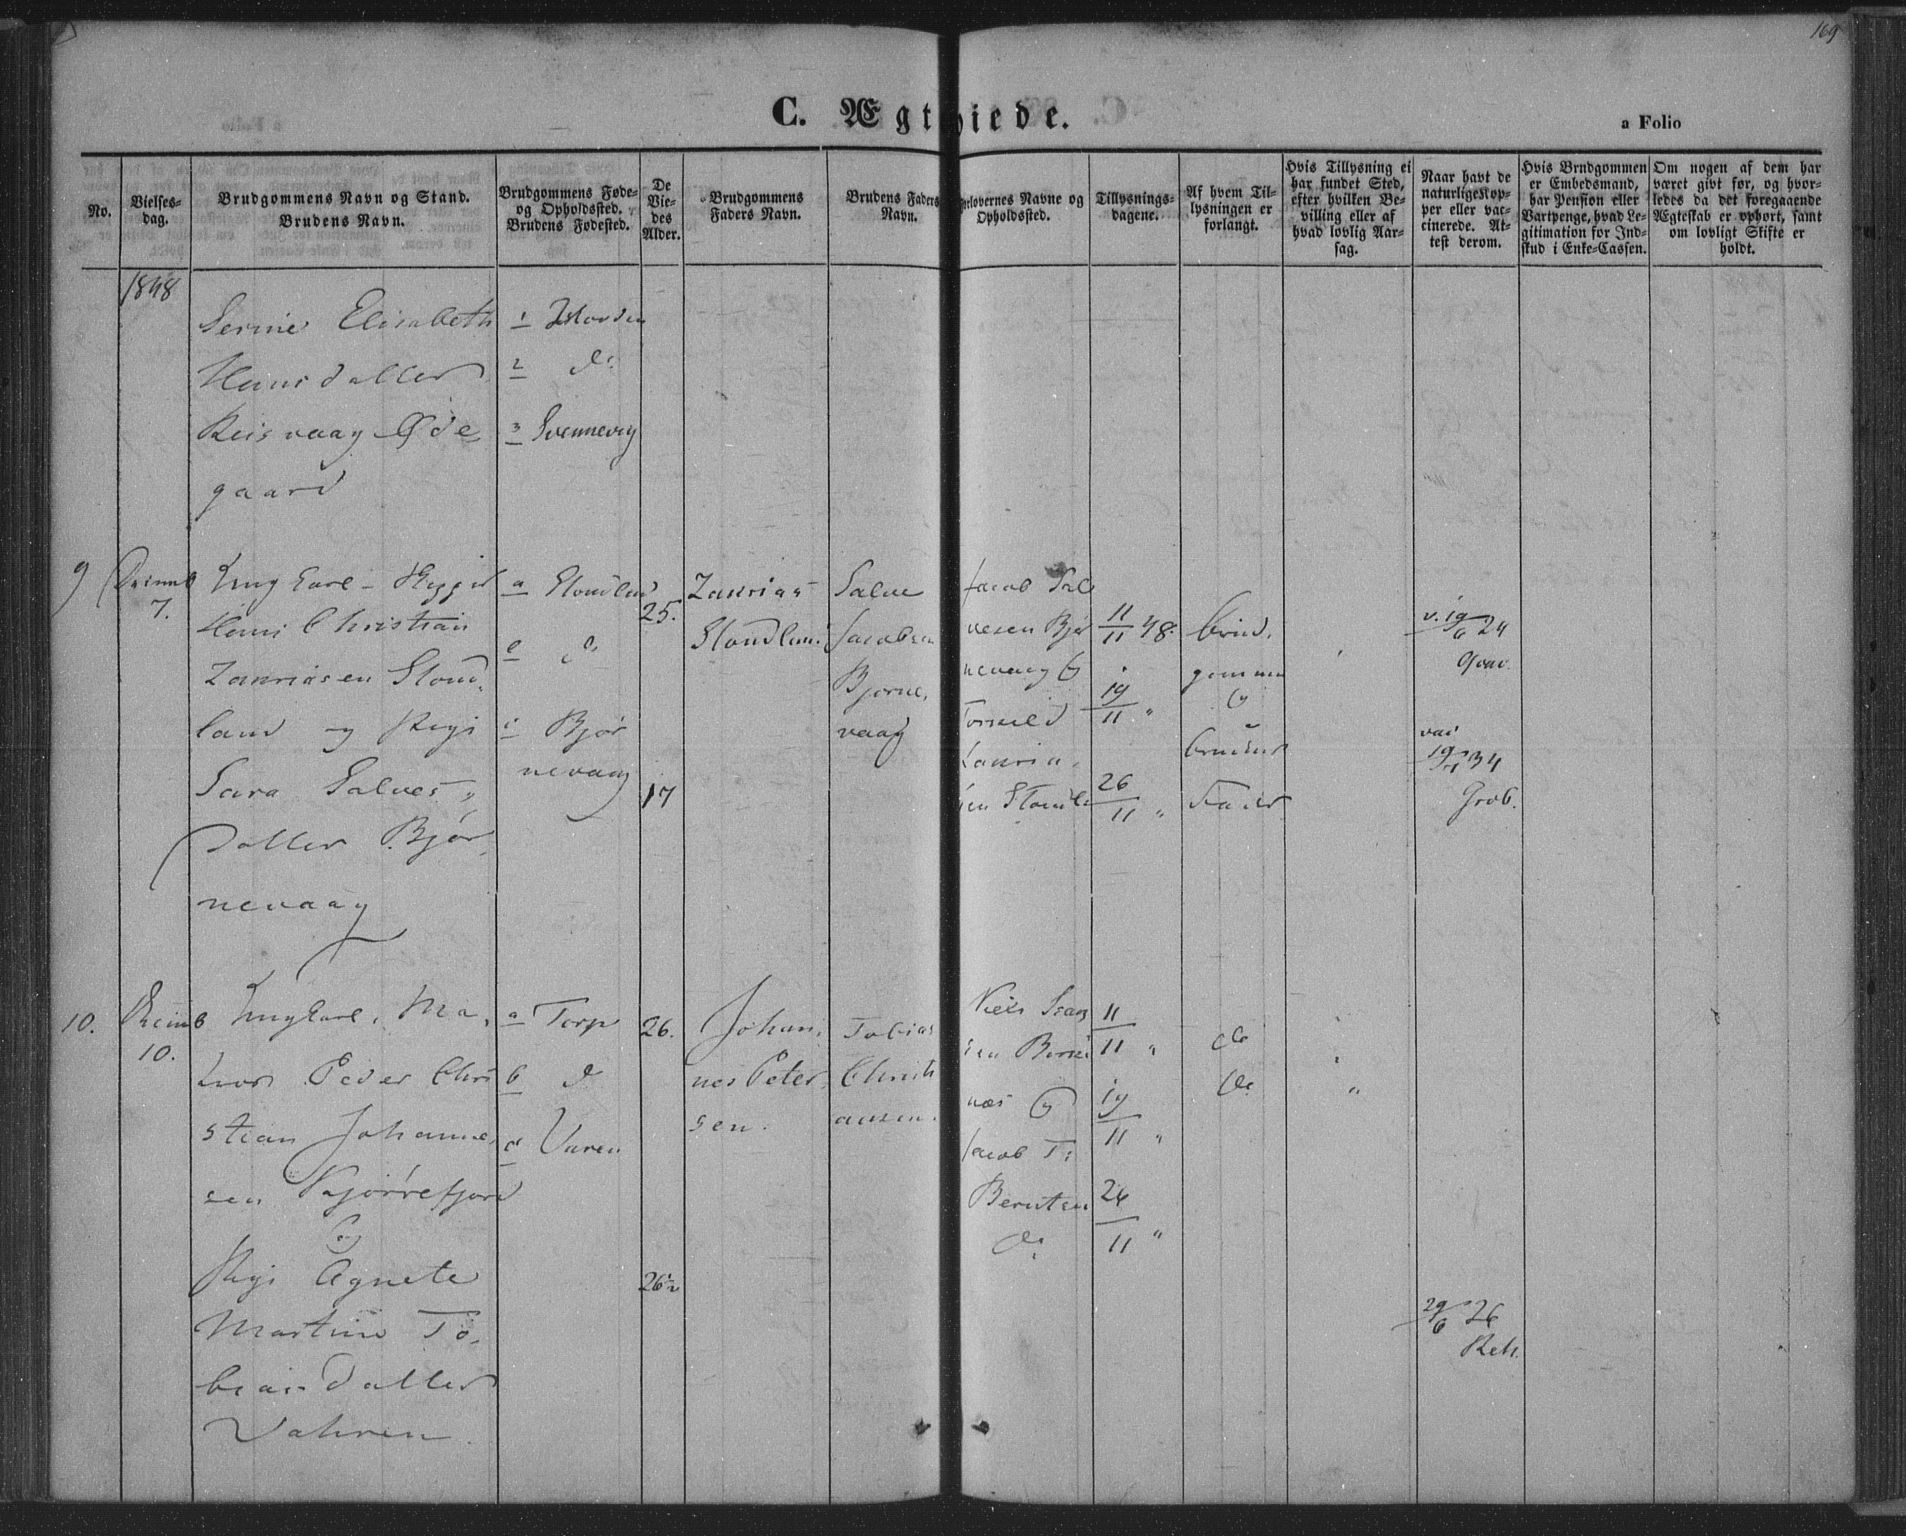 169
C. Ægthiede.
a Folio
No.
Vielses-
dag.
Brudgommens Navn og Stand.
Brudens Navn.
Brudgommens Føde-
og Opholdssted.
Brudens Fødested.
De
Vie-
des
Alder.
Brudgommens
Faders Navn.
Brudens Faders
Navn.
Forlovernes Navne og
Opholdssted.
Tillysnings-
dagene.
Af hvem Til-
lysningen er
forlangt.
Hvis Tillysning ei
har fundet Sted,
efter hvilken Be-
villing eller af
hvad lovlig Aar-
sag.
Naar havt de
naturlige Kop-
per eller vac-
cinerede. At-
test derom.
Hvis Brudgommen
er Embedsmand,
har Pension eller
Vartpenge, hvad Le-
gitimation for Ind-
skud i Enke-Cassen.
Om nogen af dem har
været givt før, og hvor-
ledes da det foregaaende
Ægteskab er ophørt, samt
om lovligt Skifte er
holdt.
1848
Serine Elisabeth
Hansdatter
Reisvaag Øde
gaard
1
2 do
3 Svennevig
9
7.
Ungkarl - Skipper
Hans Christian
Zakriasen Stond
land og Pige
Sara Salves
datter Bjør
nevaag
a Stondland
do
Bjør
nevaag
25.
17
Zakrias
Stondland
Salve
Jacobsen
Bjørne
vaag
Jacob Sal
vesen Bjør
nevaag og
11/11 48.
19/11 "
26/11 "
Brud
gommen
og
brudens
Fader
v. 19/6 24
vac
34
10.
10.
Ungkarl, Ma
tros Peder Chri
stian Johanne
sen Kjørrefjord
og
Pige Agnete
Martine To
biasdatter
Vahren
a Torp
b do
Varen
26.
26½
Johan
nes Peter
sen.
Tobias
Christi
ansen.
Niels
næs og
Jacob T.
Berntsen
do
11/11 "
19/11 "
26/11 "
do
do
"
29/6 26